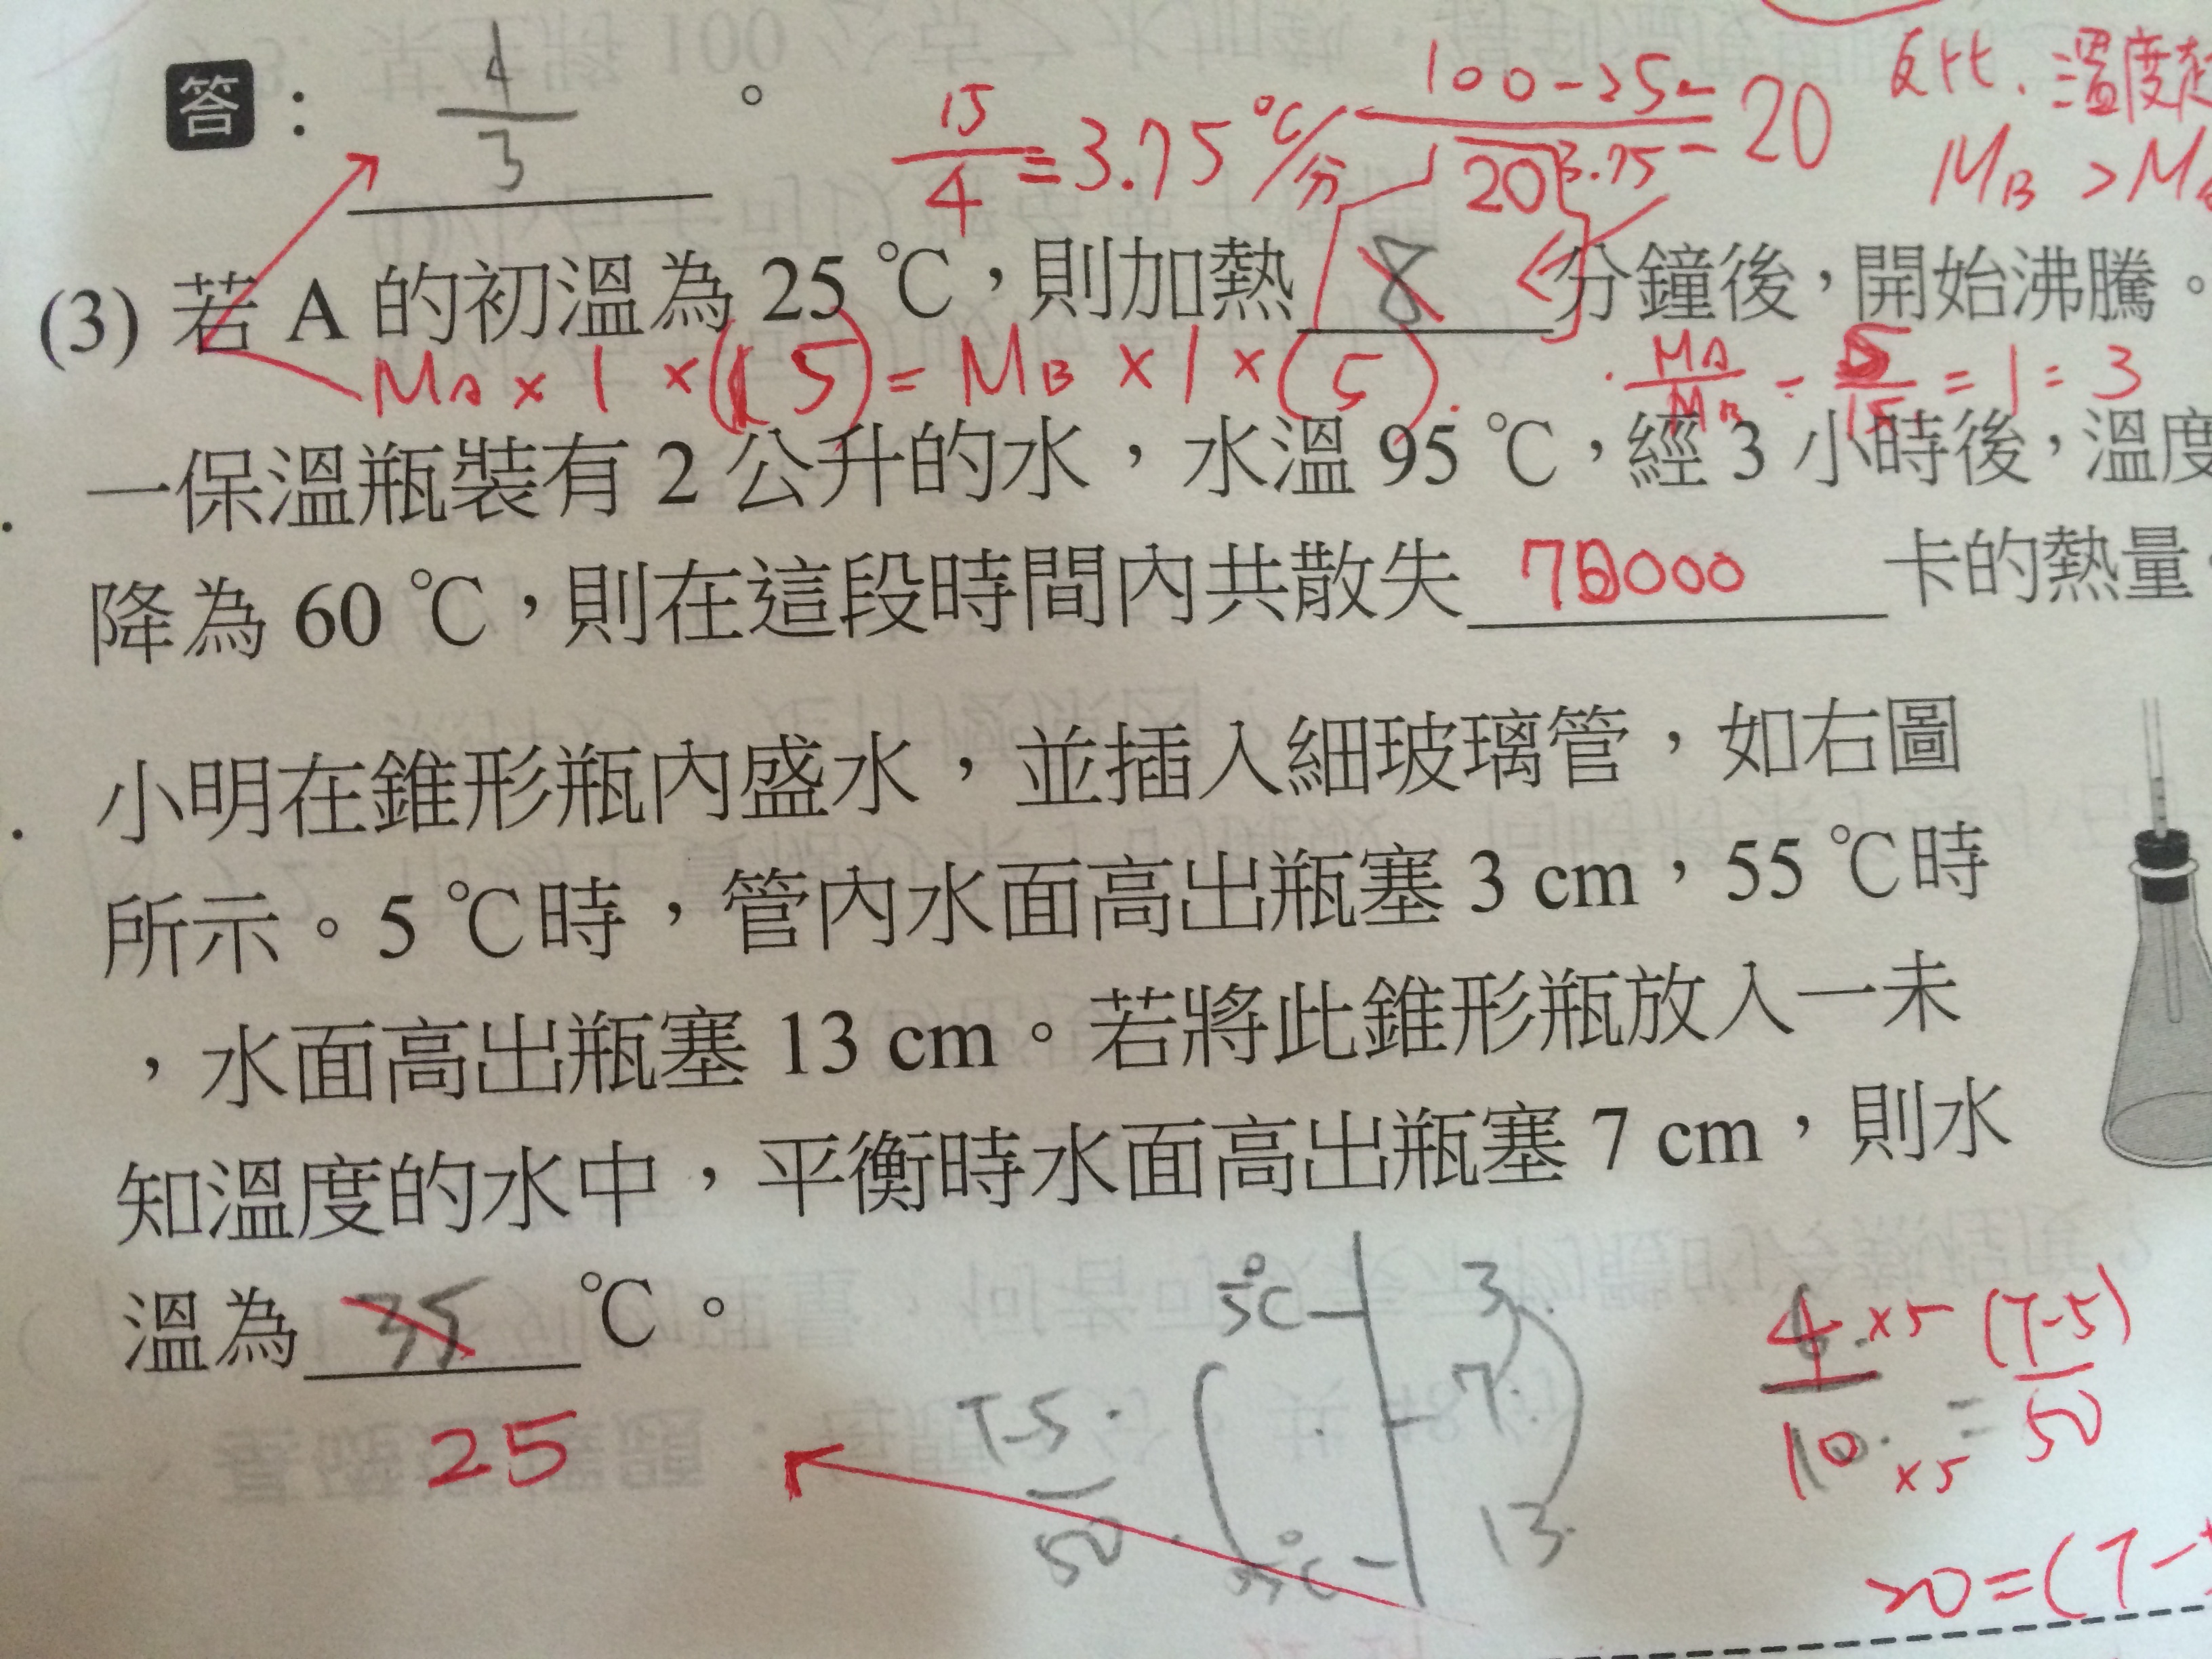 答： 4/3 。
15/4 = 3.75℃/分
100-25 / 3.75 = 20
20
反比．溫度
MB > M
(3) 若 A 的初溫為 25 ℃，則加熱 8 分鐘後，開始沸騰。
MA × 1 × (15) = MB × 1 × (5).
MA/MB = 5/15 = 1:3
一保溫瓶裝有 2 公升的水，水溫 95 ℃，經 3 小時後，溫度
降為 60 ℃，則在這段時間內共散失 70000 卡的熱量
小明在錐形瓶內盛水，並插入細玻璃管，如右圖
所示。5 ℃時，管內水面高出瓶塞 3 cm，55 ℃時
，水面高出瓶塞 13 cm。若將此錐形瓶放入一未
知溫度的水中，平衡時水面高出瓶塞 7 cm，則水
溫為 35 ℃。
25
5℃ 3
T-5/50 7
55℃ 13
4×5/10×5 = (T-5)/50
20=(T-